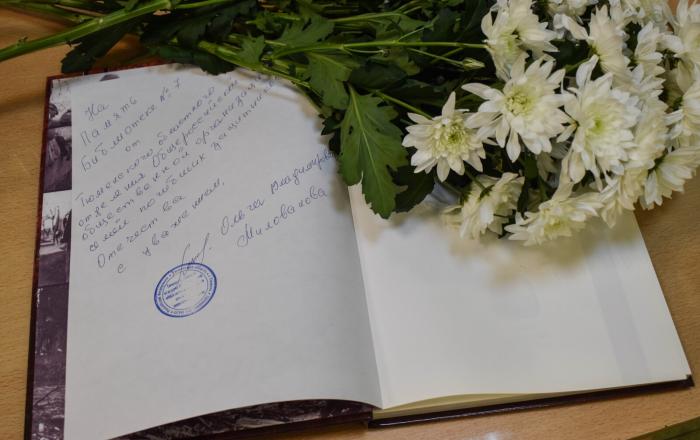 На
Память
Библиотеке № 7
от
Тюменского областного
отделения Общероссийской
общественной организации
семей погибших защитников
Отечества.
с уважением,
Ольга Владимировна
Милованова